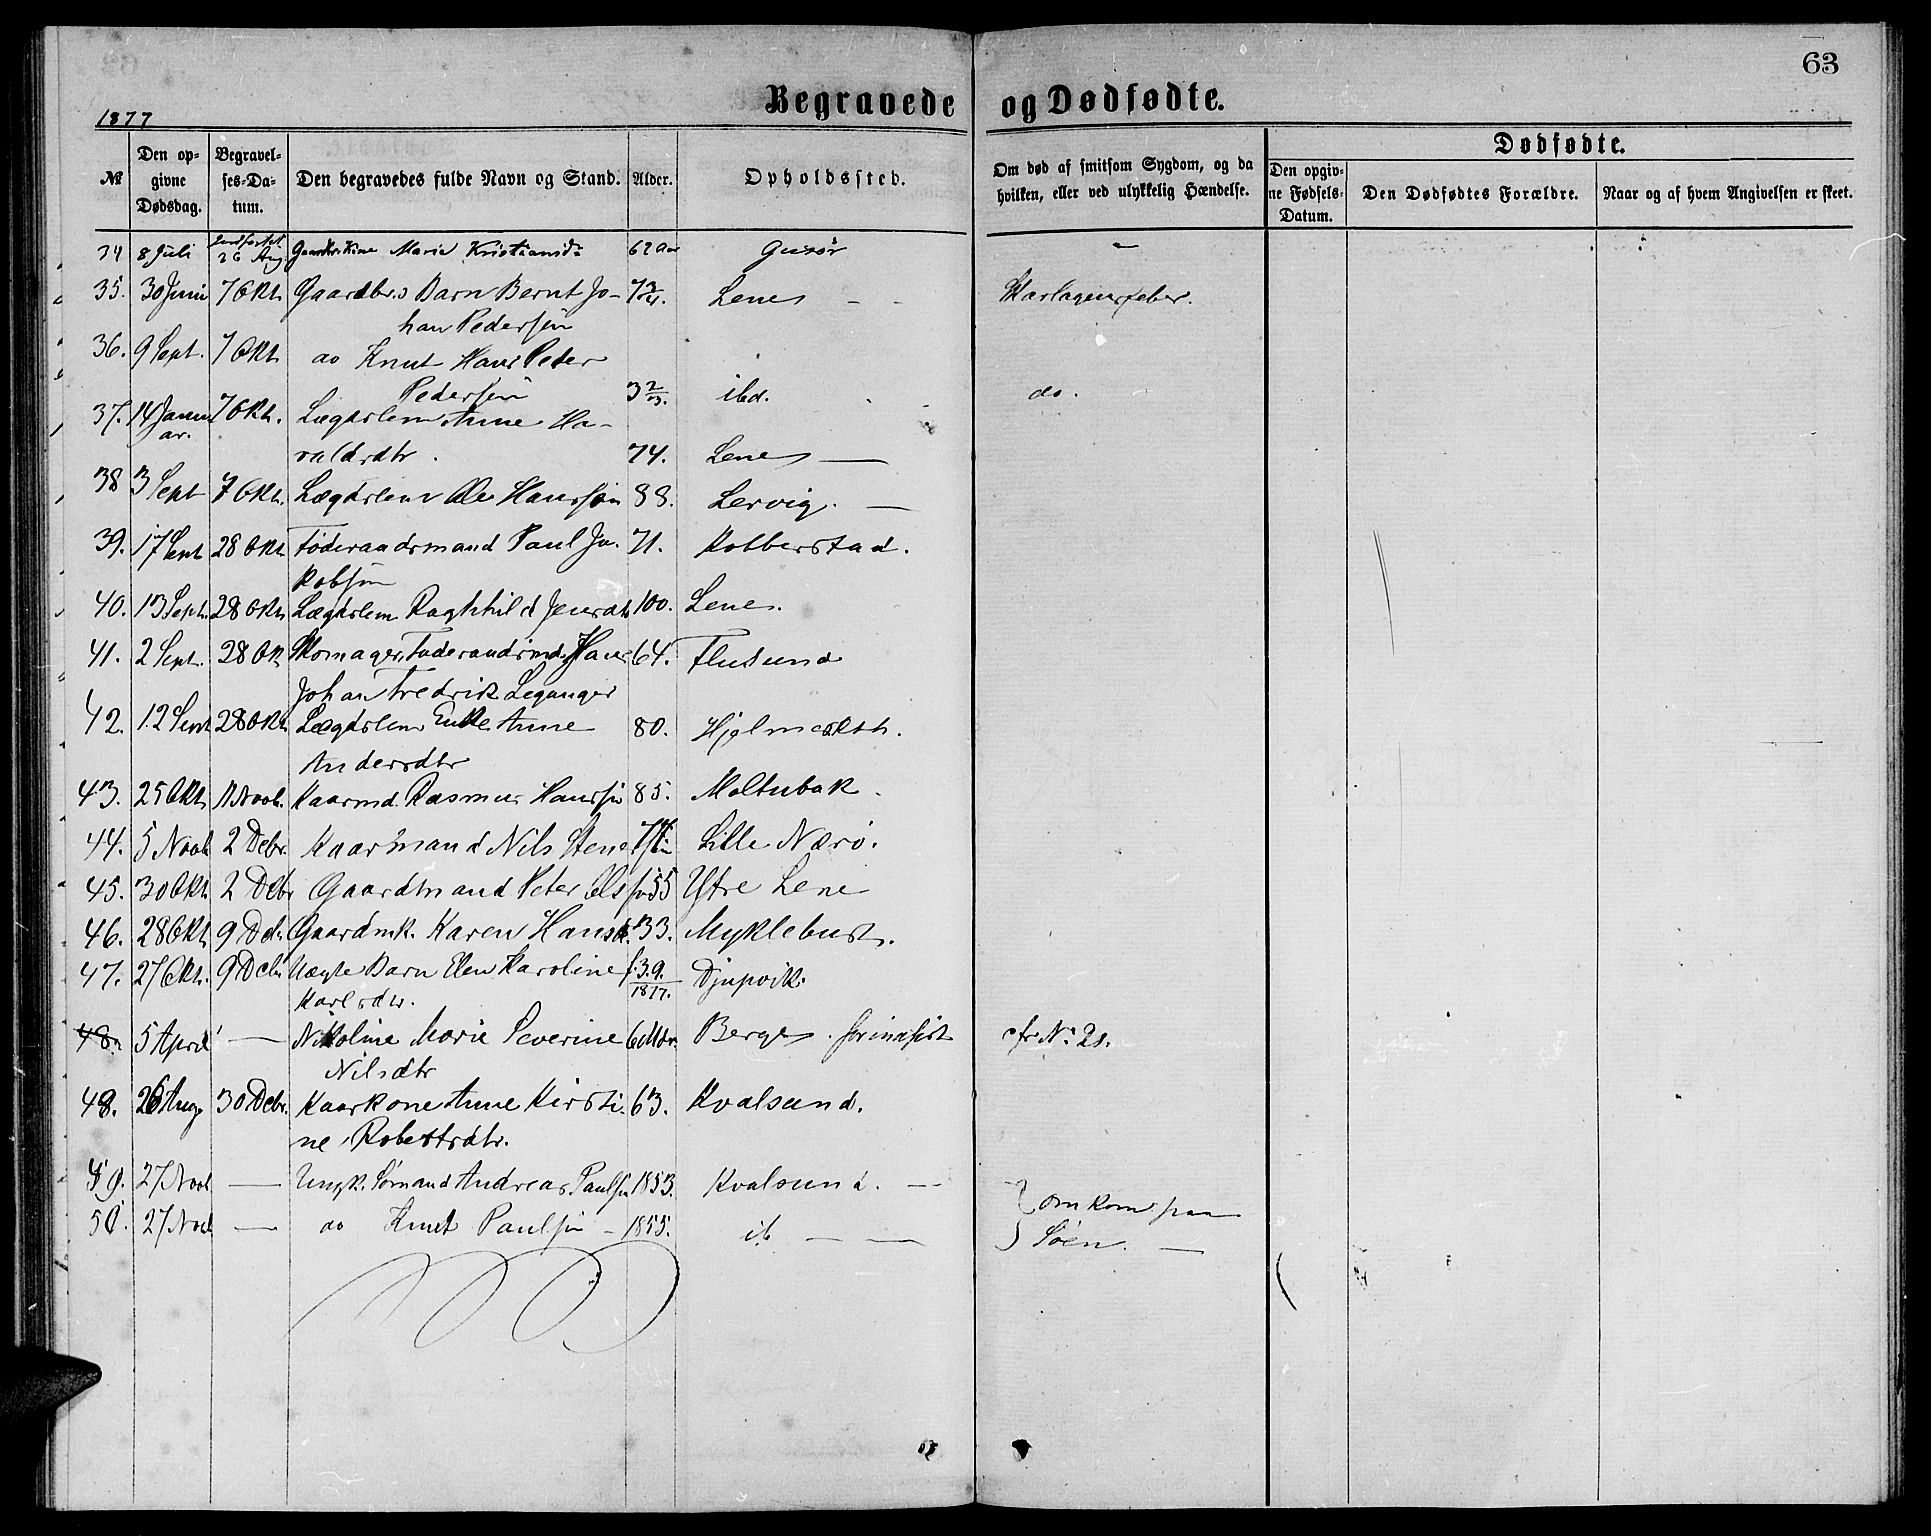 63
Begravede og Dødfødte.
1877
Dødfødte.
№ Den opgivne Dødsdag. Begravelses-Datum. Den begravedes fulde Navn og Stand. Alder. Opholdssted. Om død af smitsom Sygdom, og da hvilken, eller ved ulykkelig Hændelse. Den opgivne Fødsels-Datum. Den Dødfødtes Forældre. Naar og af hvem Angivelsen er skeet.
34 8 Juli 26 Aug Maria Kristiansd: 62 Aar Gursør —
35. 30 Juni 7 Okt. Gaardbr.s Barn Bernt Jo- 7 3/4. Lenes — - Skarlagensfeber.
han Pedersen
36. 9 Sept. 7 Okt. do Knut Hans Peter
Pedersen 3 2/3. ibd. do.
37. 14 Janu 7 Okt. Lægdslem Anne Ha-
ar.
valdsdtr. 74. Lenes —
38 3 Sept 7 Okt. Lægdslem Ole Hanssøn 88. Lervig. —
39. 17 Sept 28 Okt. Føderaadsmand Paul Ja- 71. Kobberstad.
kobsøn
40. 13 Sept. 28 Okt. Lægdslem Raghhild Jensdtr 100. Lenes.
41. 2 Sept. 28 Okt Skomager, Føderaadsmd. Hans 64. Flusund
Johan Fredrik Leganger
42. 12 Sept 28 Okt. Lægdslem Enke Anne 80. Hjelmeseth.
Andersdtr
43. 25 Okt. 11 Novb. Kaarmd. Rasmus Hanssøn 85. Moltubak.
44. 5 Novb 2 Debr. Kaarmand Nils Stenes 74 Lille Nærø.
45. 30 Okt. 2 Debr Gaardmand Peter Olssøn 55 Ytre Lene
46. 28 Okt. 9 Deb. Gaardmk. Karen Hansdt. 33. Myklebust.
47. 27 Okt. 9 Debr Uægte Barn Elen Karoline f. 3.9. Djupvik.
Karlsdtr. 1877.
48. 5 April — Nikoline Marie Severine 6 Mdr. Berges. cfr No 21.
Nilsdtr
48. 26 Aug. 30 Debr. Kaarkone Anne Kirsti- 63. Kvalsund.
ne Robertsdtr.
49. 27 Novb — Ungk. Sømand Andreas Paulsøn 1853. Kvalsund. — } omkom paa
50. 27 Novb — do Knut Paulsøn — 1855. ib — — Søen. —